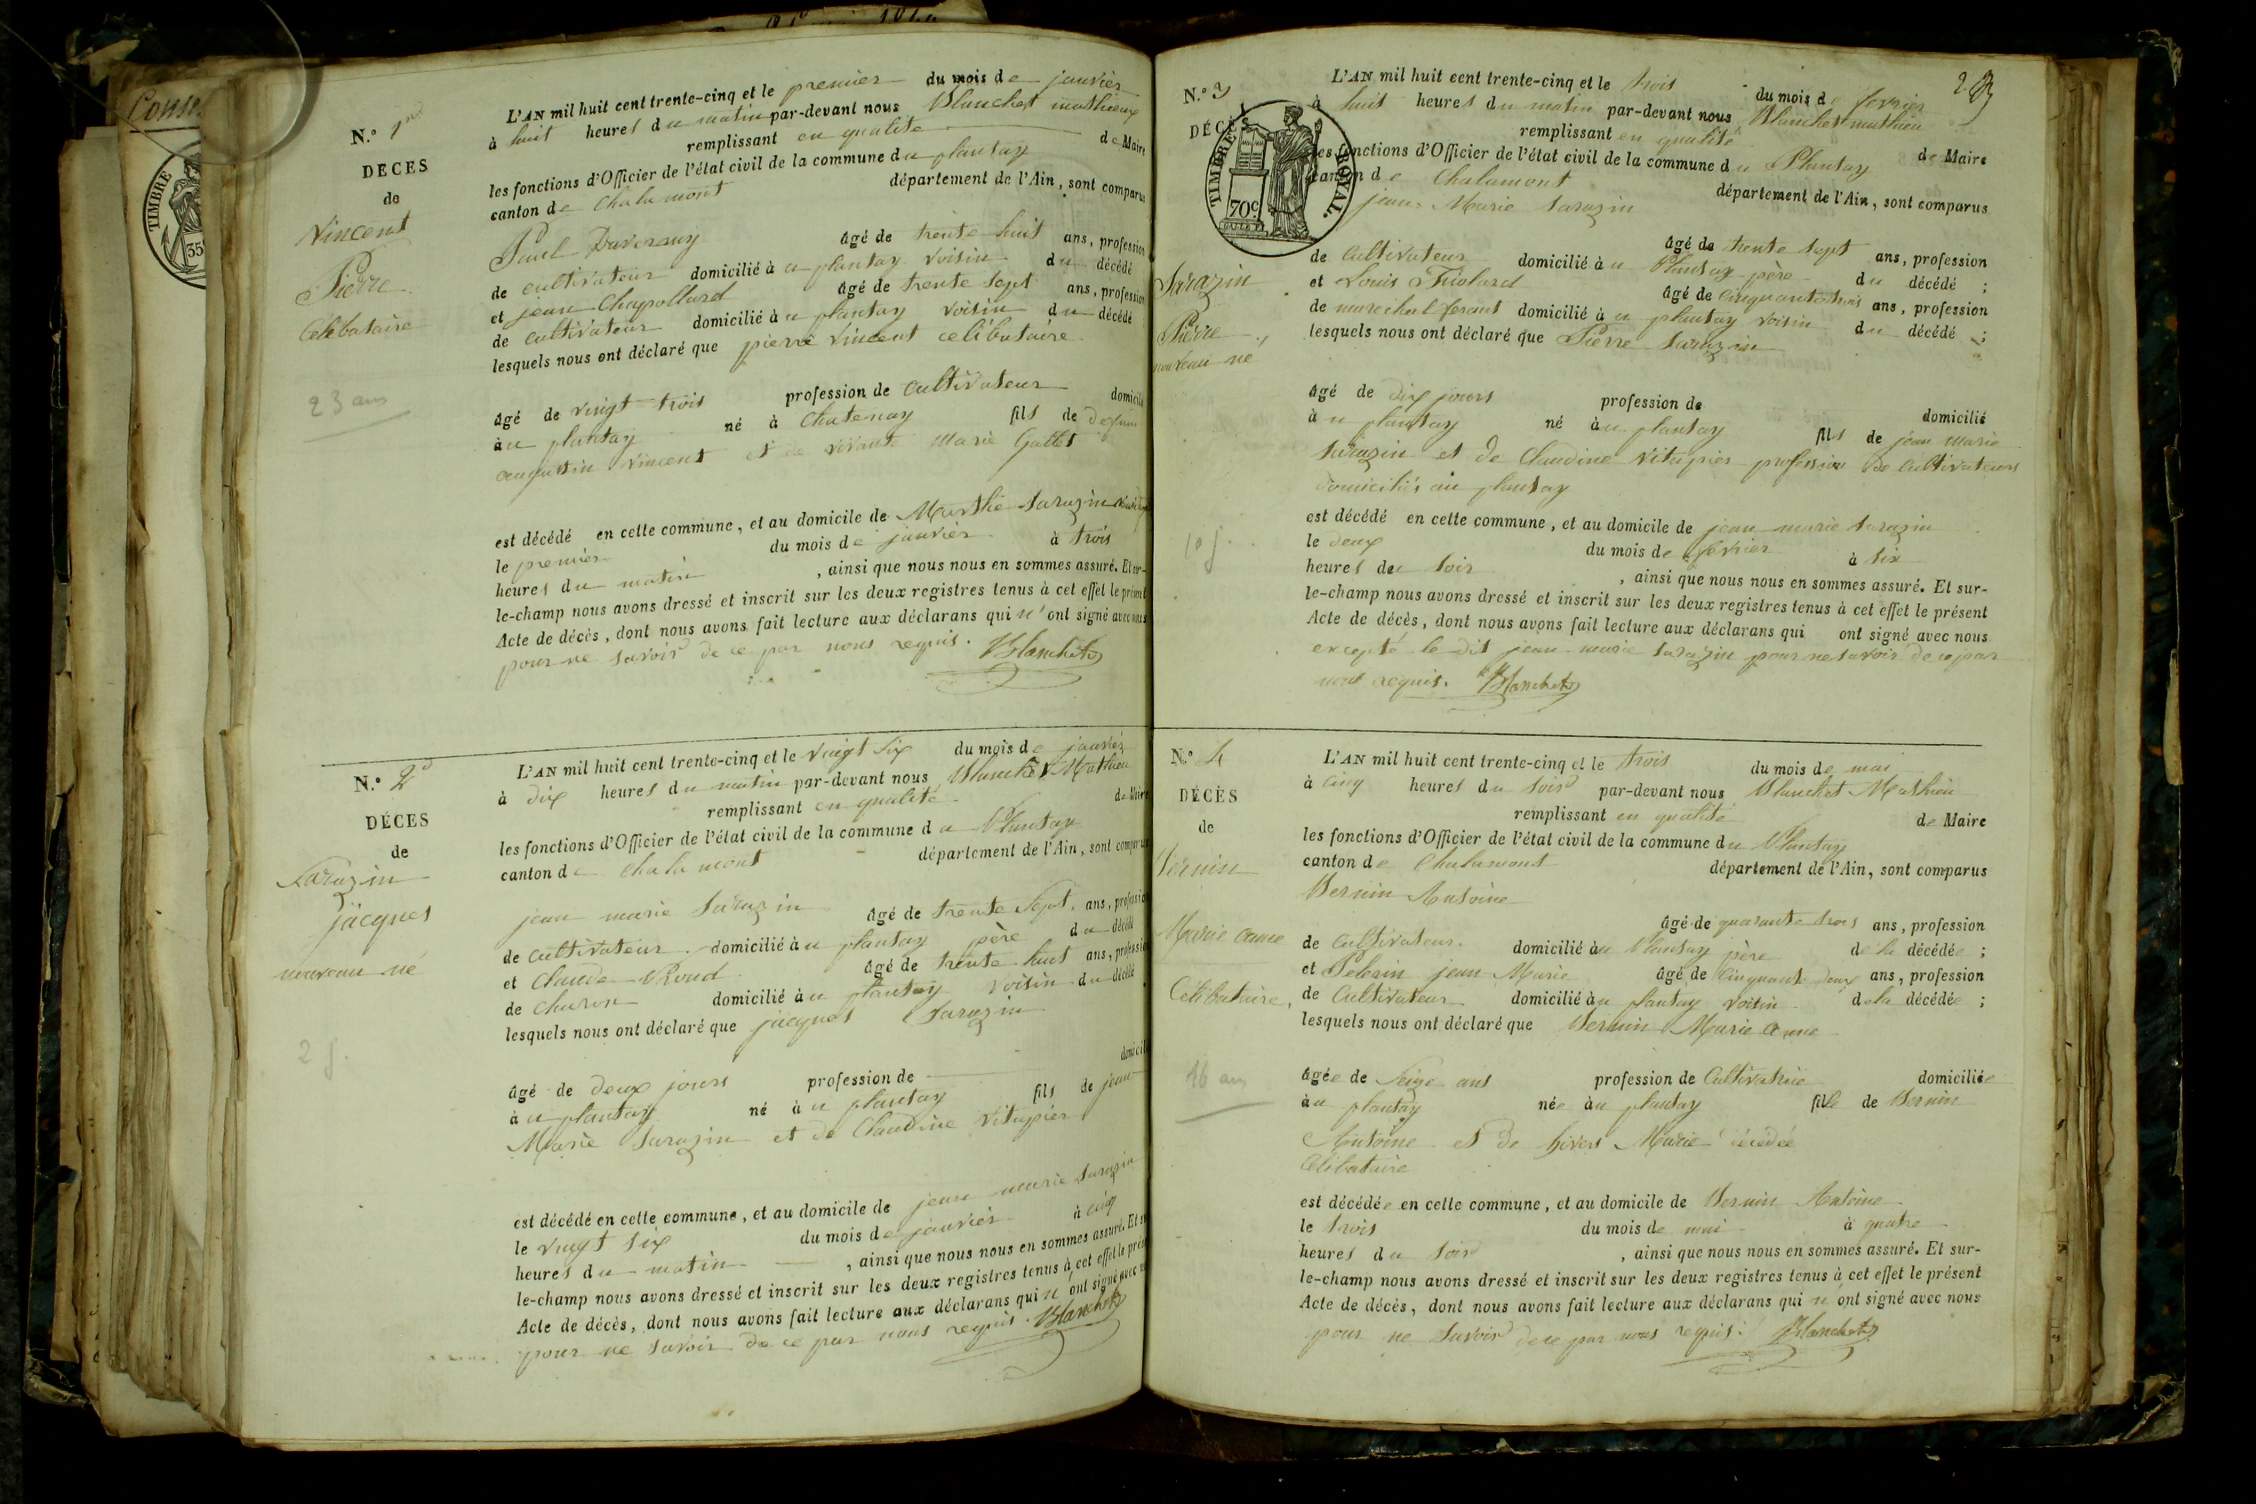 Conse
TIMBRE
35
N.º 1er
DÉCES
de
Vincent
Pierre
Célébataire
23 ans
L'AN mil huit cent trente-cinq et le premier du mois de janvier
à huit heures du matin par-devant nous Blanchet mathieux
remplissant en qualité de Maire
les fonctions d'Officier de l'état civil de la commune du plantay
canton de Chalamont département de l'Ain, sont comparus
Paul âgé de trente huit ans, profession
de cultivateur domicilié à u plantay voisin du décédé
et jean Chapollard âgé de trente sept ans, profession
de cultivateur domicilié à u plantay voisin du décédé
lesquels nous ont déclaré que pierre vincent celibataire
âgé de vingt trois profession de cultivateur domicilié
à u plantay né à Chatenay fils de defunt
augustin vincent et de vivante Marie Gallet
est décédé en cette commune, et au domicile de Marthe Sarazin
le premier du mois de janvier à trois
heures du matin, ainsi que nous nous en sommes assuré. Et sur-
le-champ nous avons dressé et inscrit sur les deux registres tenus à cet effet le présent
Acte de décès, dont nous avons fait lecture aux déclarans qui n'ont signé avec nous
pour ne savoir de ce par nous requis. Blanchet
N.º 2d
DÉCES
de
Sarazin
jacques
nouveau né
2 j.
L'AN mil huit cent trente-cinq et le vingt six du mois de janvier
à dix heures du matin par-devant nous Blanchet Mathieu
remplissant en qualité de Maire
les fonctions d'Officier de l'état civil de la commune du Plantay
canton de Chalamont département de l'Ain, sont comparus
jean marie Sarazin âgé de trente sept ans, profession
de cultivateur domicilié à u plantay père du décédé
et Claude âgé de trente huit ans, profession
de charon domicilié à u plantay voisin du décédé
lesquels nous ont déclaré que jacques Sarazin
âgé de deux jours profession de domicilié
à u plantay né à u plantay fils de jean
Marie Sarazin et de Claudine Vitupier
est décédé en cette commune, et au domicile de jean marie Sarazin
le vingt six du mois de janvier à cinq
heures du matin, ainsi que nous nous en sommes assuré. Et sur-
le-champ nous avons dressé et inscrit sur les deux registres tenus à cet effet le présent
Acte de décès, dont nous avons fait lecture aux déclarans qui n'ont signé avec nous
pour ne savoir de ce par nous requis. Blanchet
N.º 3
DÉCÈS
TIMBRE ROYAL.
70c
Sarazin
Pierre
nouveau né
10 j.
L'AN mil huit cent trente-cinq et le trois du mois de fevrier
à huit heures du matin par-devant nous Blanchet mathieu
remplissant en qualité de Maire
les fonctions d'Officier de l'état civil de la commune du Plantay
canton de Chalamont département de l'Ain, sont comparus
jean Marie Sarazin âgé de trente sept ans, profession
de cultivateur domicilié à u Plantay père du décédé ;
et Louis âgé de cinquante trois ans, profession
de marechal ferant domicilié à u plantay voisin du décédé ;
lesquels nous ont déclaré que Pierre Sarazin
âgé de dix jours profession de domicilié
à u plantay né à u plantay fils de jean marie
Sarazin et de Claudine Vitupier profession de cultivateurs
domiciliés au plantay
est décédé en cette commune, et au domicile de jean marie Sarazin
le deux du mois de fevrier à six
heures du soir, ainsi que nous nous en sommes assuré. Et sur-
le-champ nous avons dressé et inscrit sur les deux registres tenus à cet effet le présent
Acte de décès, dont nous avons fait lecture aux déclarans qui ont signé avec nous
excepté le dit jean marie Sarazin pour ne savoir de ce par
nous requis. Blanchet
N.º 4
DÉCÈS
de
Bernin
Marie anne
Célibataire,
16 ans
L'AN mil huit cent trente-cinq et le trois du mois de mai
à cinq heures du soir par-devant nous Blanchet Mathieu
remplissant en qualité de Maire
les fonctions d'Officier de l'état civil de la commune du Plantay
canton de Chalamont département de l'Ain, sont comparus
Bernin Antoine
âgé de quarante trois ans, profession
de Cultivateur domicilié à u Plantay père de la décédée ;
et Pelerin jean Marie âgé de cinquante deux ans, profession
de Cultivateur domicilié à u plantay voisin de la décédée ;
lesquels nous ont déclaré que Bernin Marie anne
âgée de Seize ans profession de Cultivatrice domiciliée
à u plantay née à u plantay fille de Bernin
Antoine et de Marie décédée
Célibataire
est décédée en cette commune, et au domicile de Bernin Antoine
le trois du mois de mai à quatre
heures du soir, ainsi que nous nous en sommes assuré. Et sur-
le-champ nous avons dressé et inscrit sur les deux registres tenus à cet effet le présent
Acte de décès, dont nous avons fait lecture aux déclarans qui n'ont signé avec nous
pour ne savoir de ce par nous requis. Blanchet